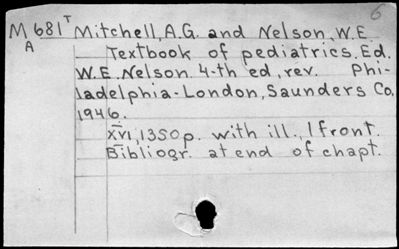 6
M 681 T Mitchell, A.G. and Nelson, W.E.
A
Textbook of pediatrics. Ed.
W.E. Nelson. 4-th ed., rev. Phi-
ladelphia-London, Saunders Co,
1946.
XVI, 1350 p. with ill., 1 front.
Bibliogr. at end of chapt.